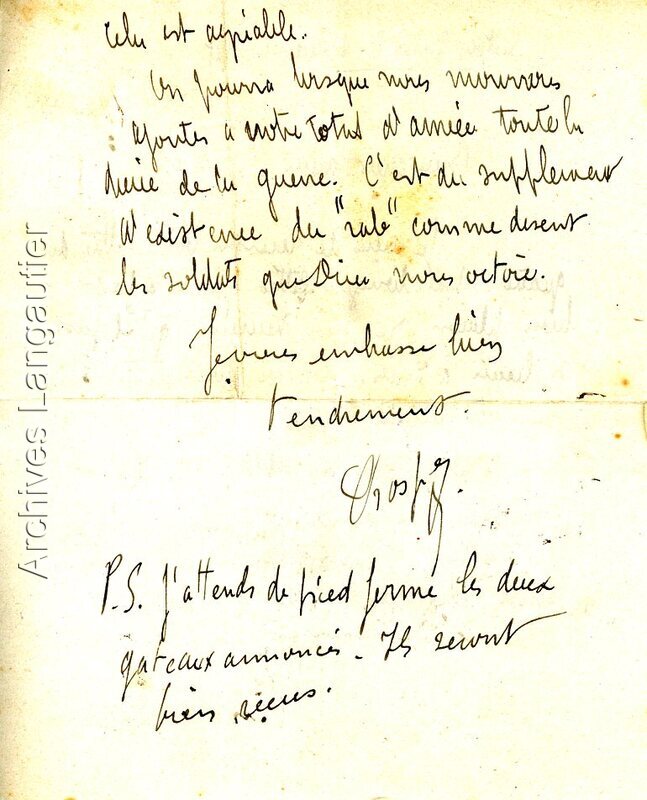 Cela est agréable.
On pourra lorsque nous mourrons
ajouter a notre total d'années toute la
durée de la guerre. C'est du supplement
d'existence du "rab" comme disent
les soldats que Dieu nous octroie.
Je vous embrasse bien
tendrement.
P.S. J'attends de pied ferme les deux
gateaux annoncés. Ils seront
bien reçus.
Archives Langautier